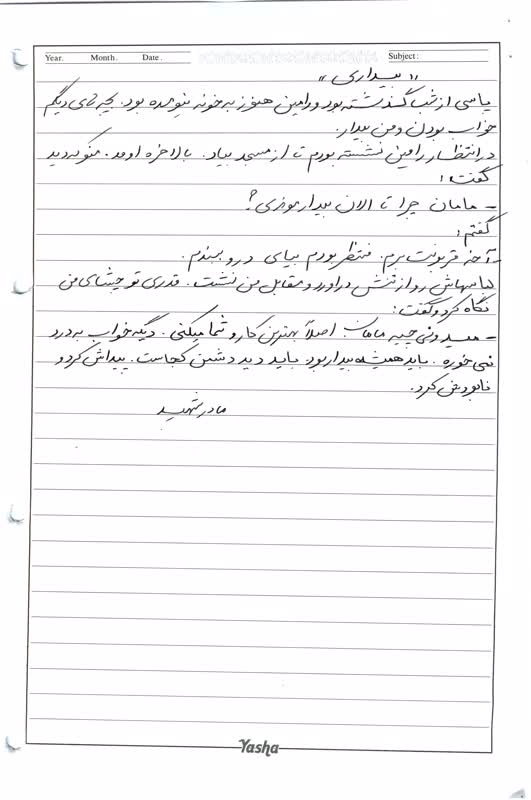 Year. Month. Date. Subject:
« بیداری »
پاسی از شب گذشته بود و رامین هنوز به خونه نیومده بود. بچه های دیگم
خواب بودن و من بیدار.
در انتظار رامین نشسته بودم تا از مسجد بیاد. بالاخره اومد. منو که دید
گفت:
- مامان چرا تا الان بیدار موندی؟
گفتم:
- آخه قربونت برم. منتظر بودم بیای درو ببندم.
لباسهاش رو از تنش دراورد و مقابل من نشست. قدری تو چشمای من
نگاه کرد و گفت:
- میدونی چیه مامان؛ اصلاً بهترین کارو شما میکنی. دیگه خواب به درد
نمی خوره. باید همیشه بیدار بود باید دید دشمن کجاست. پیداش کرد و
نابودش کرد.
مادر شهید
Yasha